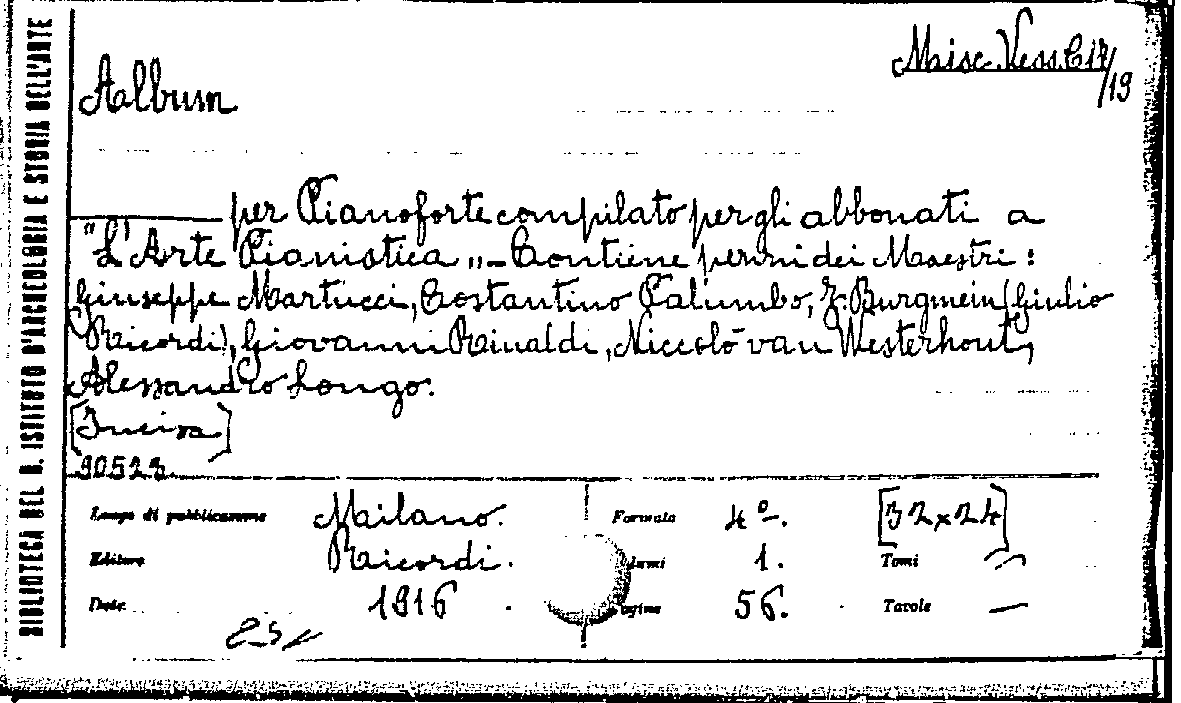 BIBLIOTECA DEL R. ISTITUTO D'ARCHEOLOGIA E STORIA DELL'ARTE
Misc. Vess. C 17/19
Album
per Pianoforte compilato per gli abbonati a
"L'Arte Pianistica" - Contiene pezzi dei Maestri:
Giuseppe Martucci, Costantino Palumbo, J. Burgmein (Giulio
Ricordi), Giovanni Rinaldi, Niccolò van Westerhout,
Alessandro Longo.
90523.
Luogo di pubblicazione Milano. Formato 4º. [32x24]
Editore Ricordi. 1. Tomi —
Data 1916 56. Tavole —